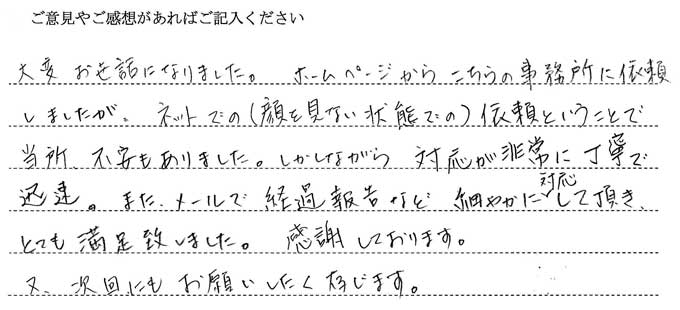 ご意見やご感想があればご記入ください
大変 お世話になりました。 ホームページから こちらの事務所に依頼
しましたが、ネットでの(顔を見ない状態での)依頼ということで
当所、不安もありました。しかしながら 対応が非常に丁寧で
迅速。また、メールで 経過報告など 細やかに対応して頂き、
とても 満足致しました。 感謝しております。
又、次回にもお願いしたく存じます。